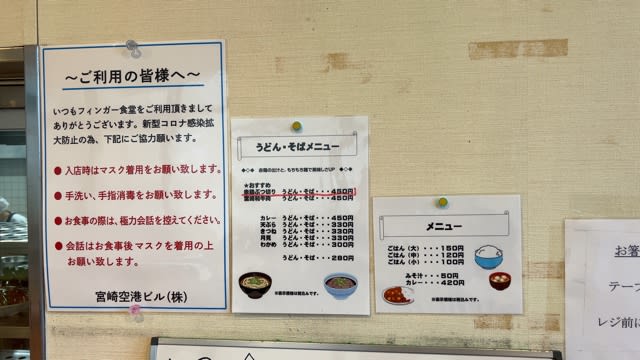 ～ご利用の皆様へ～
いつもフィンガー食堂をご利用頂きまして
ありがとうございます。新型コロナ感染拡
大防止の為、下記にご協力願います。
● 入店時はマスク着用をお願い致します。
● 手洗い、手指消毒をお願い致します。
● お食事の際は、極力会話を控えてください。
● 会話はお食事後マスクを着用の上
お願い致します。
宮崎空港ビル(株)
うどん・そばメニュー
★おすすめ
うどん・そば・・・450円
宮崎和牛肉 うどん・そば・・・450円
カレー うどん・そば・・・450円
天ぷら うどん・そば・・・330円
きつね うどん・そば・・・330円
月見 うどん・そば・・・330円
わかめ うどん・そば・・・300円
うどん・そば・・・280円
※表示価格は税込みです。
メニュー
ごはん（大）・・・150円
ごはん（中）・・・120円
ごはん（小）・・・100円
みそ汁・・・50円
カレー・・・420円
※表示価格は税込みです。
お箸
テーブ
レジ前に